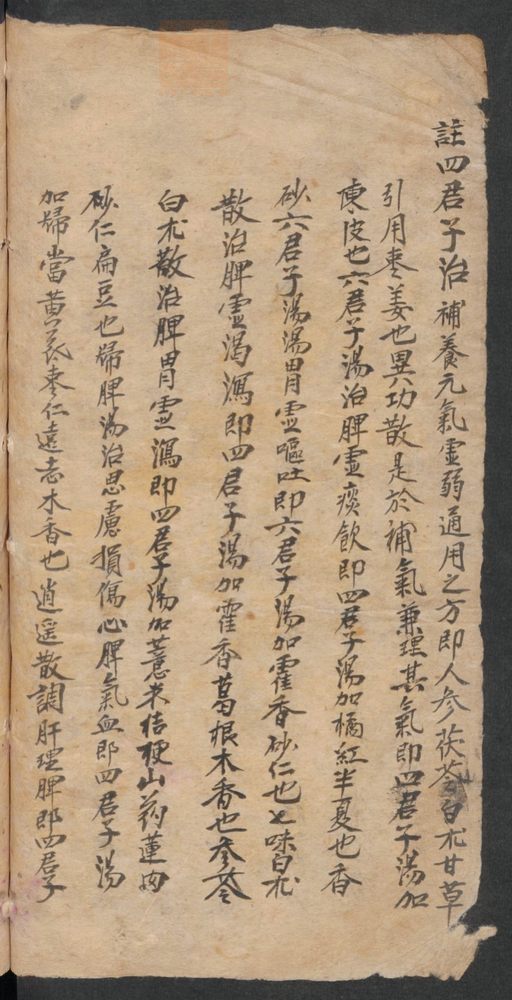 註四君子治補養元氣虛弱通用之方即人参茯苓白朮甘草
引用枣姜也異功散是於補氣兼理其氣即四君子湯加
陳皮也六君子湯治脾虛痰飲即四君子湯加橘紅半夏也香
砂六君子湯湯胃虛嘔吐即六君子湯加霍香砂仁也七味白朮
散治脾虛渴瀉即四君子湯加霍香葛根木香也参苓
白朮散治脾胃虛瀉即四君子湯加薏米桔梗山药蓮肉
砂仁扁豆也歸脾湯治思慮損傷心脾氣血即四君子湯
加歸當黄芪枣仁遠志木香也逍遥散調肝理脾即四君子